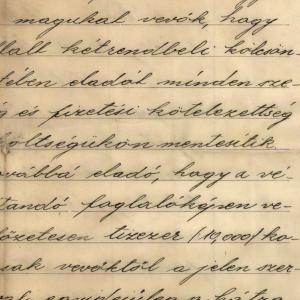 magukat vevők, hogy
llalt kétrendbeli kölcsön-
tében eladót minden sze-
g és fizetési kötelezettség
költségükön mentesítik,
vábbá eladó, hogy a vé-
tandó foglalóképen ve-
lőzetesen tizezer /10,000/ ko-
sak vevőktől a jelen szer-
egyidejűleg a hátra